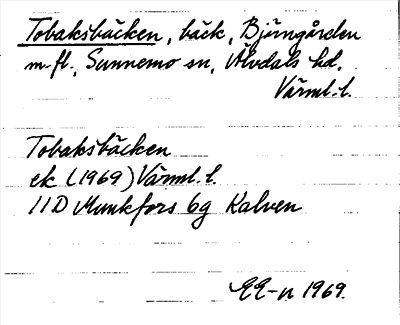 Tobaksbäcken, bäck, Björngården
m.fl., Sunnemo sn, Älvdals hd,
Värml. l.
Tobaksbäcken
ek (1969) Värml. l.
11D Munkfors 6g Kalven
EE-n 1969.